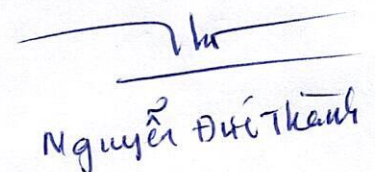 Nguyễn Đức Thành